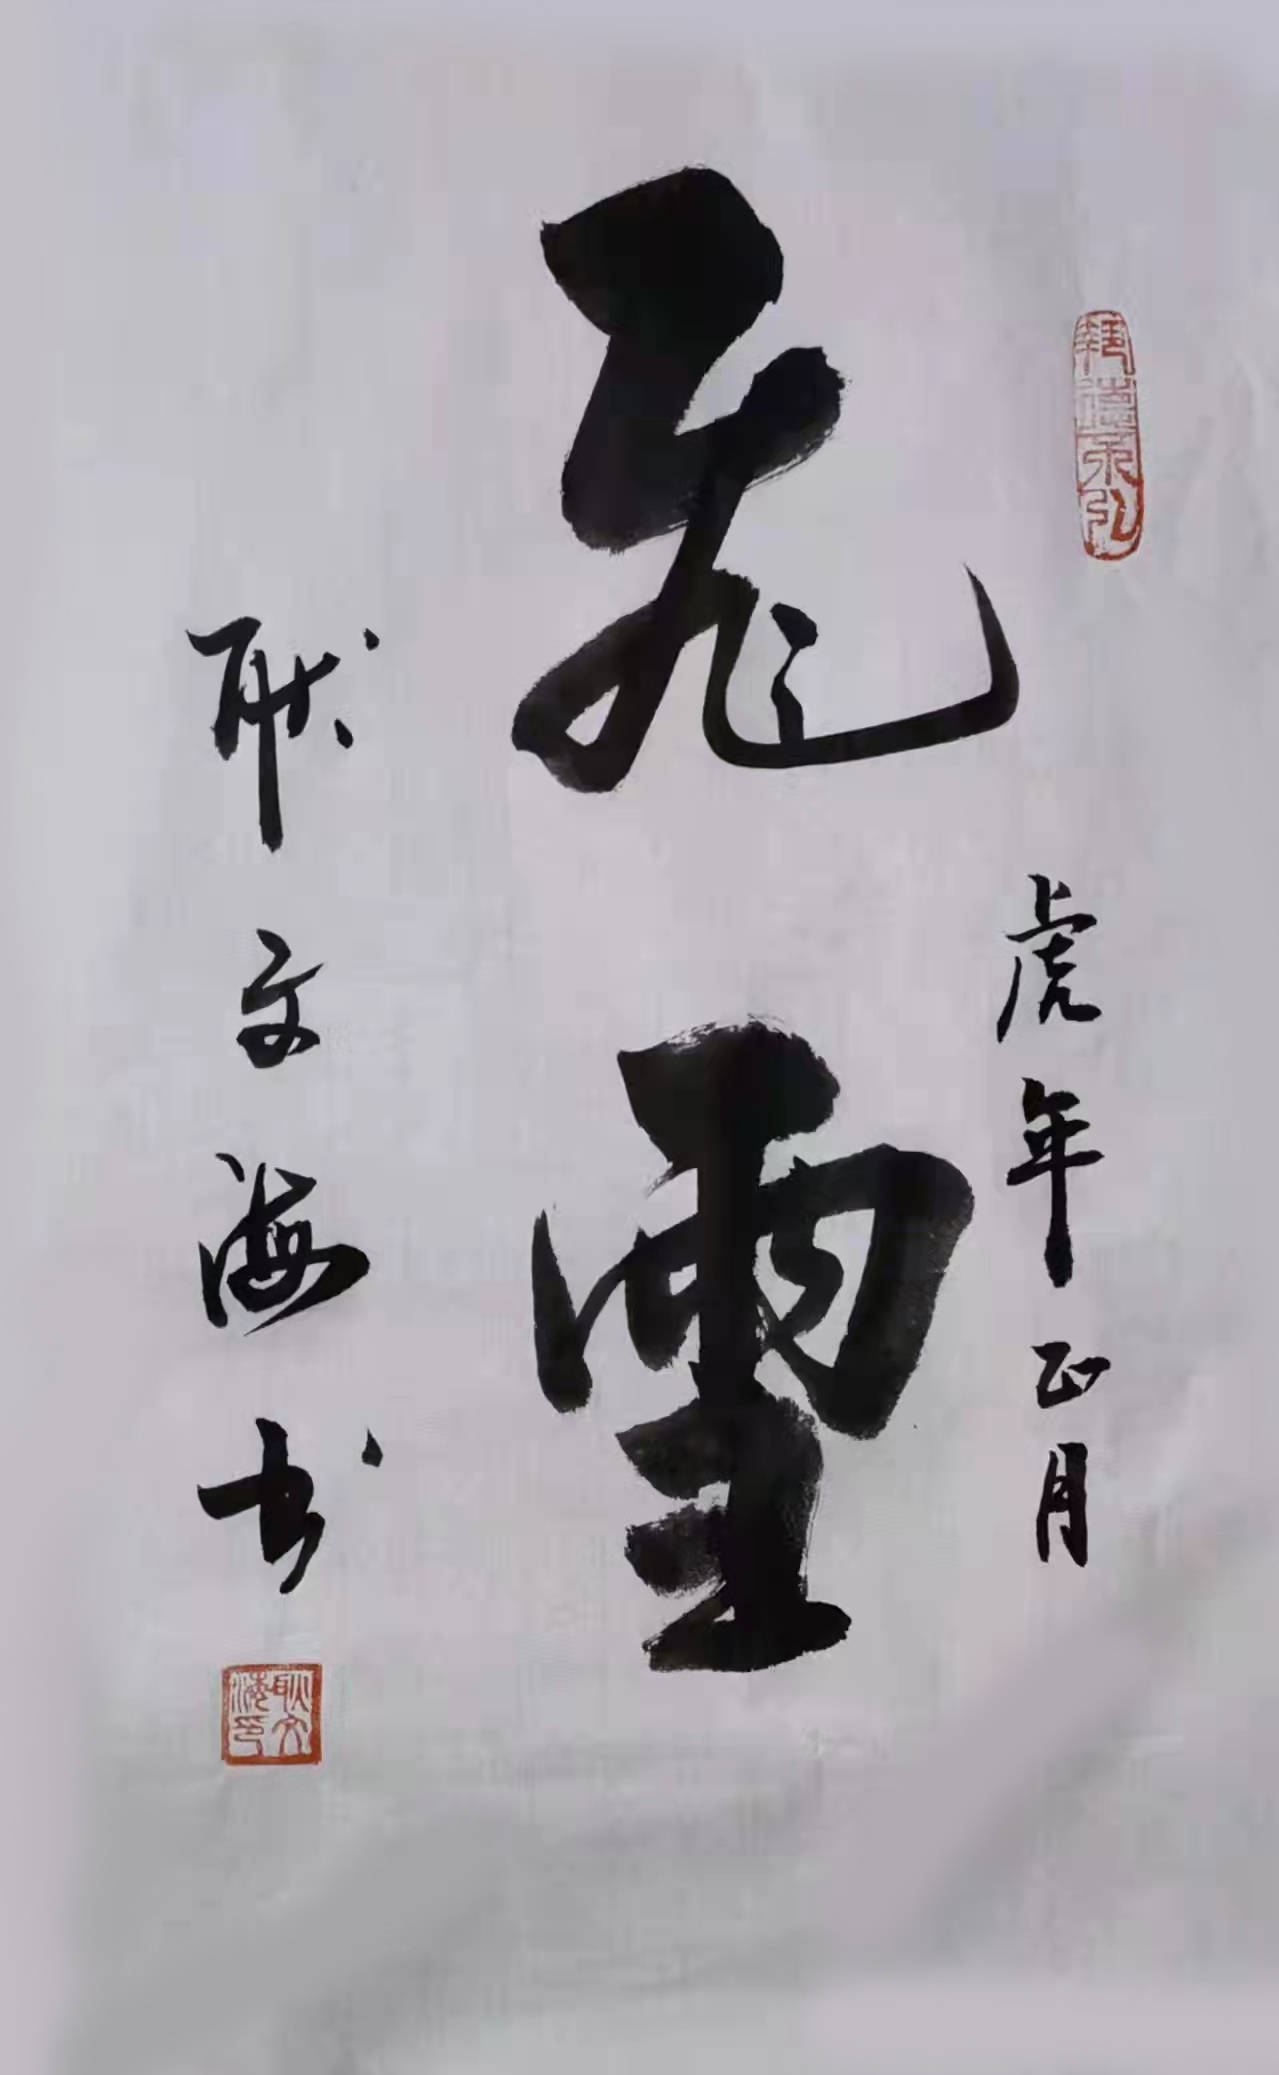 虎年正月
飛雪
耿文海书
耿文海印